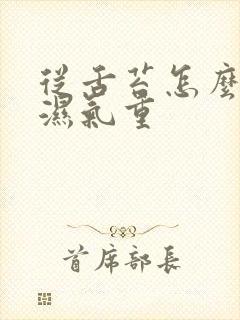 從舌苔怎麼
濕氣重
首席部長